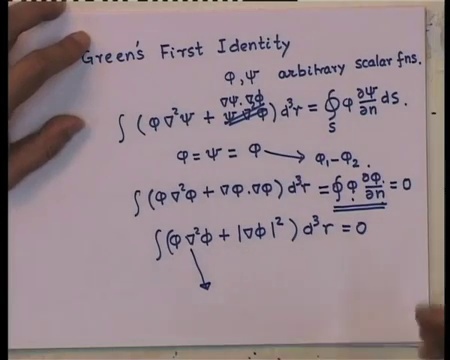 Green's First Identity
φ, ψ arbitrary scalar fns.
∇ψ.∇φ
∫ (φ∇²ψ + ψ∇²φ) d³r = ∮_S φ ∂ψ/∂n dS.
φ = ψ = φ → φ₁-φ₂.
∫ (φ∇²φ + ∇φ.∇φ) d³r = ∮ φ ∂φ/∂n = 0
∫(φ∇²φ + |∇φ|²) d³r = 0